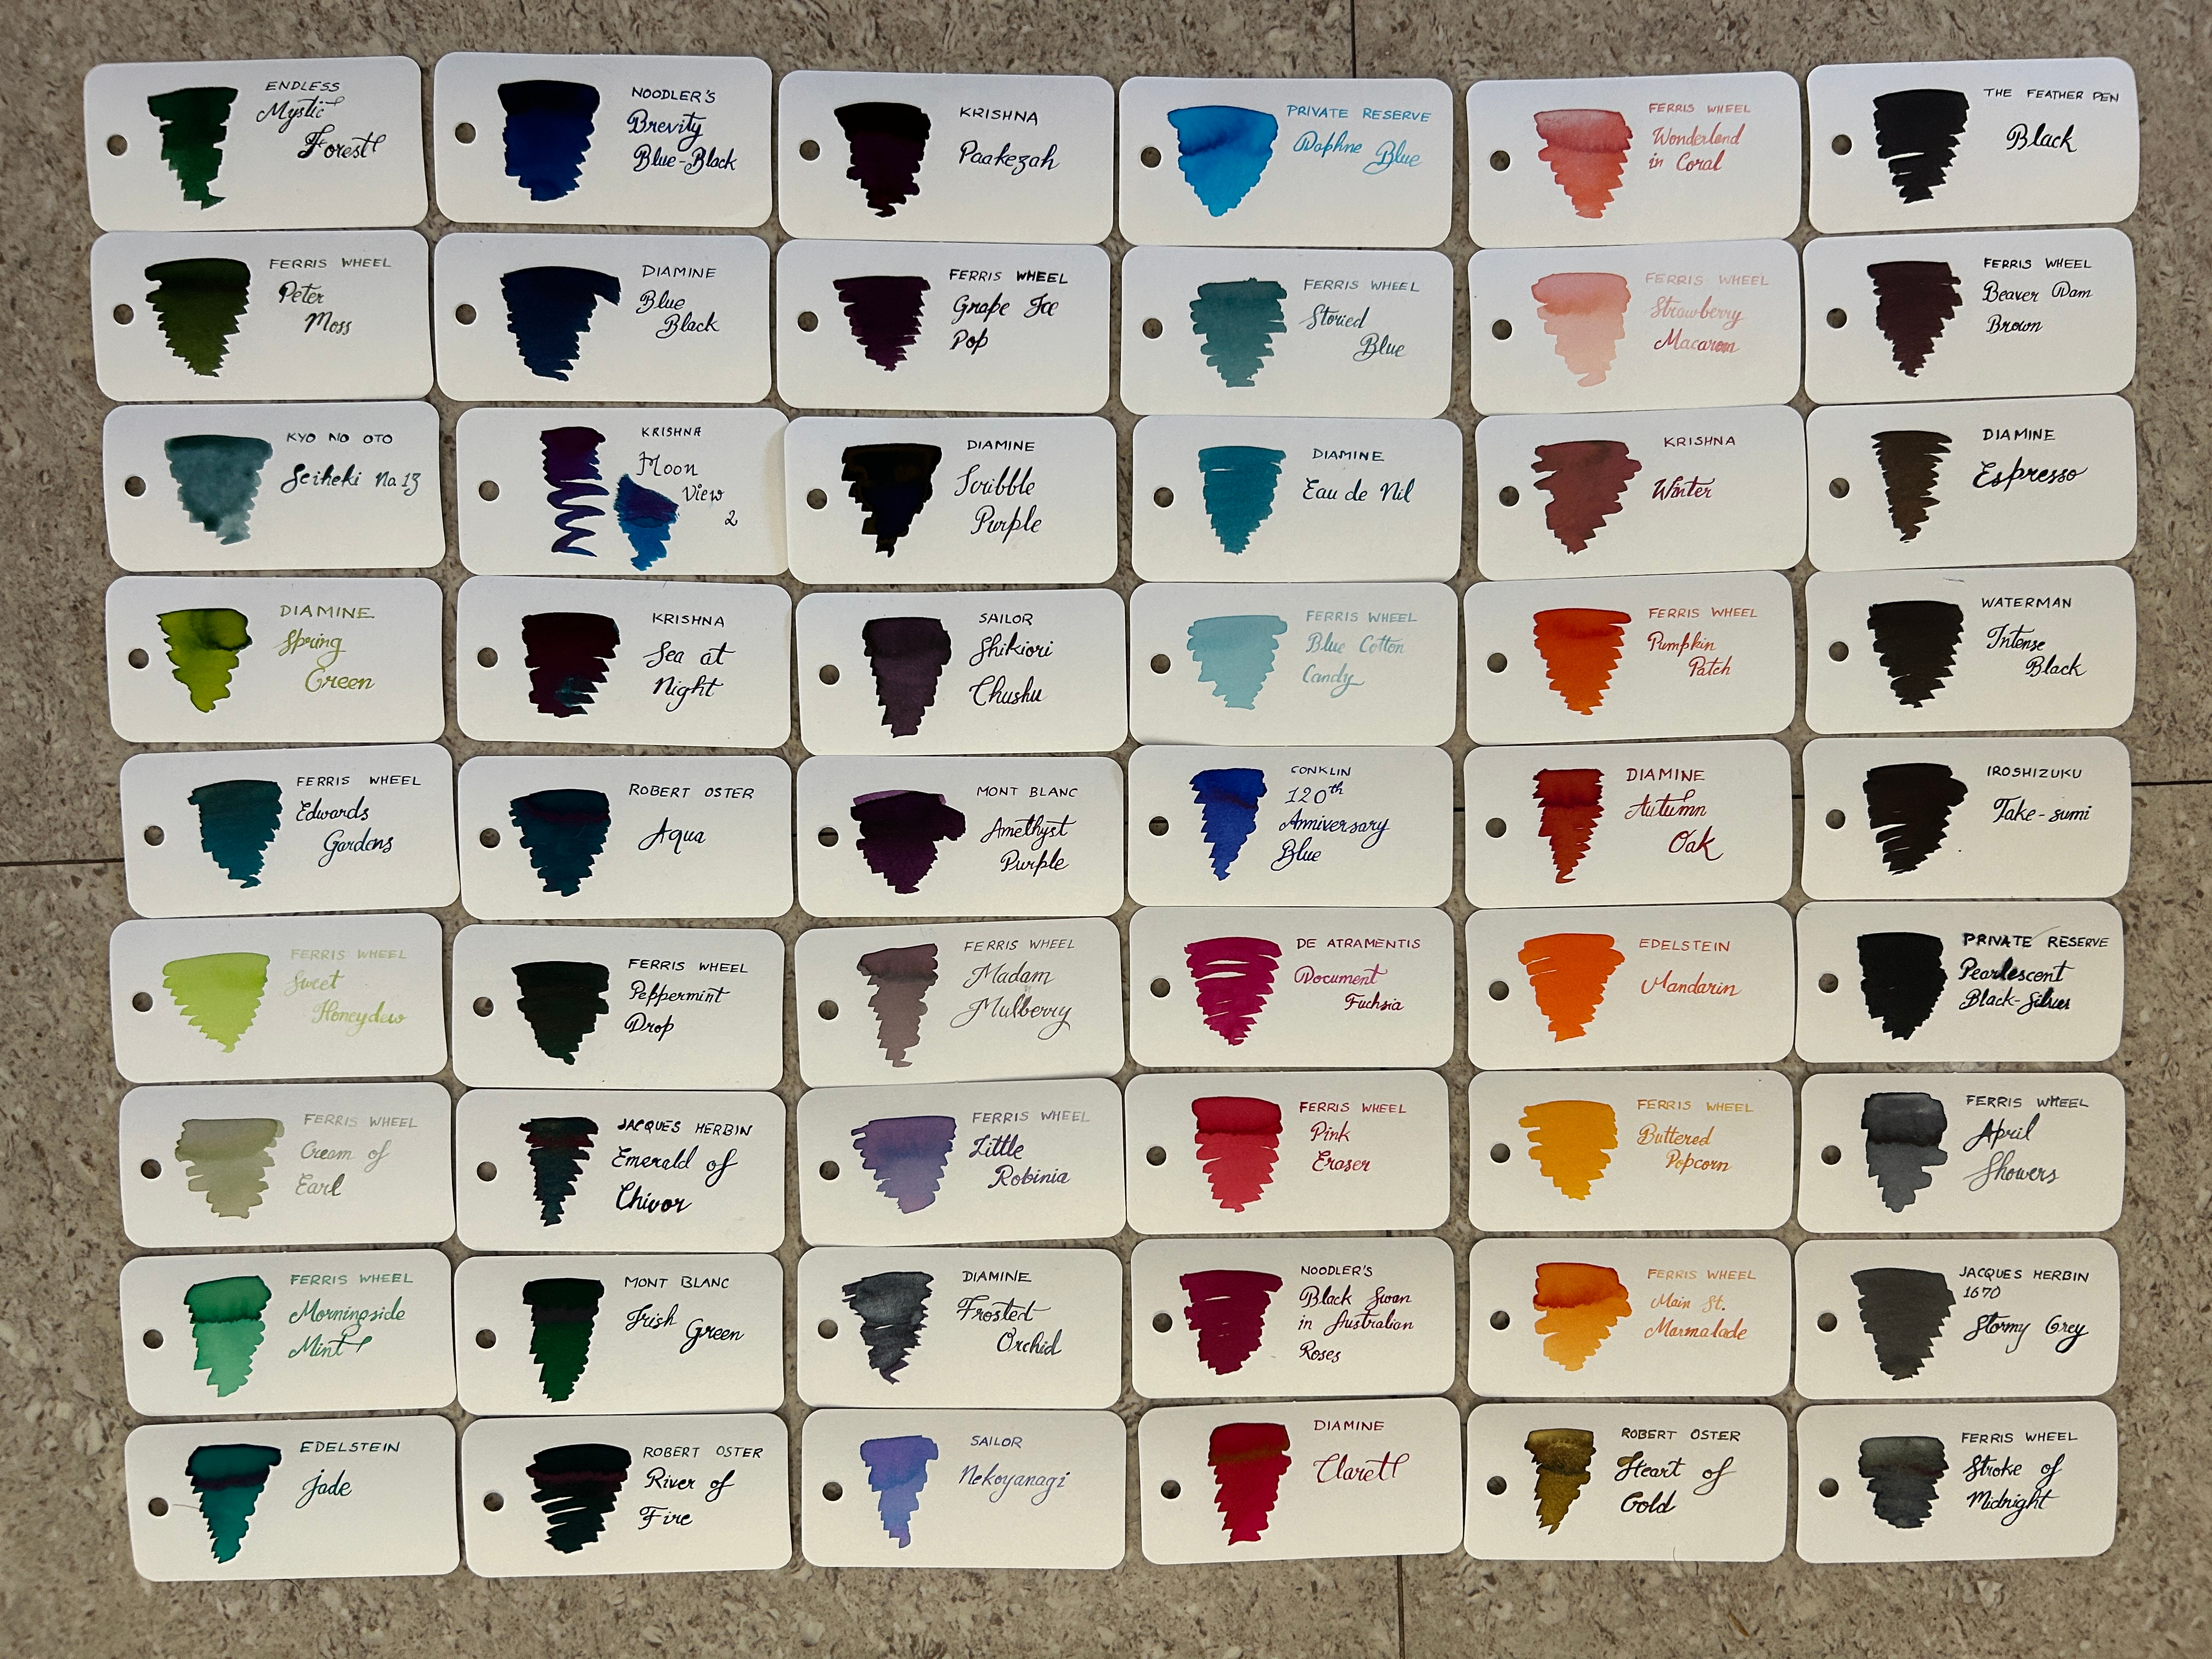 ENDLESS
Mystic
Forest
NOODLER'S
Brevity
Blue-Black
KRISHNA
Paakezah
PRIVATE RESERVE
Daphne Blue
FERRIS WHEEL
Wonderland
in Coral
THE FEATHER PEN
Black
FERRIS WHEEL
Peter
Moss
DIAMINE
Blue
Black
FERRIS WHEEL
Grape Ice
Pop
FERRIS WHEEL
Storied
Blue
FERRIS WHEEL
Strawberry
Macaron
FERRIS WHEEL
Beaver Dam
Brown
KYO NO OTO
Seiheki No 13
KRISHNA
Moon
View
2
DIAMINE
Scribble
Purple
DIAMINE
Eau de Nil
KRISHNA
Winter
DIAMINE
Espresso
DIAMINE
Spring
Green
KRISHNA
Sea at
Night
SAILOR
Shikiori
Chushu
FERRIS WHEEL
Blue Cotton
Candy
FERRIS WHEEL
Pumpkin
Patch
WATERMAN
Intense
Black
FERRIS WHEEL
Edwards
Gardens
ROBERT OSTER
Aqua
MONT BLANC
Amethyst
Purple
CONKLIN
120th
Anniversary
Blue
DIAMINE
Autumn
Oak
IROSHIZUKU
Take-sumi
FERRIS WHEEL
Sweet
Honeydew
FERRIS WHEEL
Peppermint
Drop
FERRIS WHEEL
Madam
Mulberry
DE ATRAMENTIS
Document
Fuchsia
EDELSTEIN
Mandarin
PRIVATE RESERVE
Pearlescent
Black-Silver
FERRIS WHEEL
Cream of
Earl
JACQUES HERBIN
Emerald of
Chivor
FERRIS WHEEL
Little
Robinia
FERRIS WHEEL
Pink
Eraser
FERRIS WHEEL
Buttered
Popcorn
FERRIS WHEEL
April
Showers
FERRIS WHEEL
Morningside
Mint
MONT BLANC
Irish
Green
DIAMINE
Frosted
Orchid
NOODLER'S
Black Swan
in Australian
Roses
FERRIS WHEEL
Main St.
Marmalade
JACQUES HERBIN
1670
Stormy Grey
EDELSTEIN
Jade
ROBERT OSTER
River of
Fire
SAILOR
Nekoyanagi
DIAMINE
Claret
ROBERT OSTER
Heart of
Gold
FERRIS WHEEL
Stroke of
Midnight